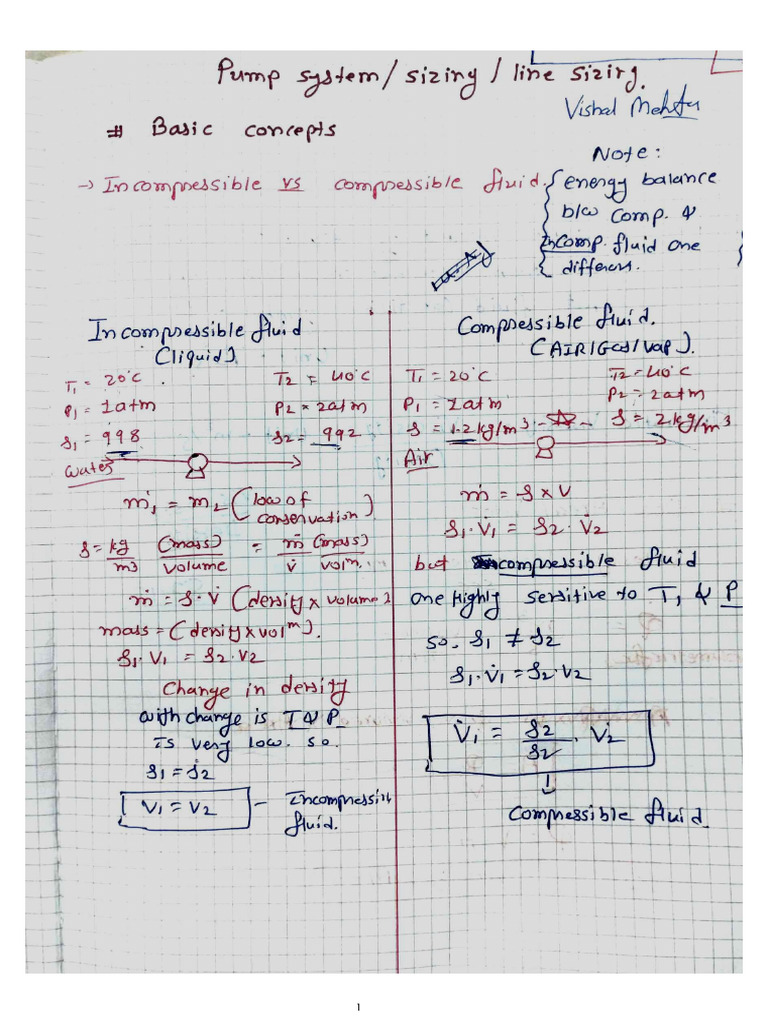 Pump system/ sizing / line sizing.
Vishal Mehta
# Basic concepts
Note:
→ Incompressible vs compressible fluid.
{ energy balance
b/w Comp. &
Incomp. fluid one
different.
Incompressible fluid
(liquid).
T1 = 20°C.
T2 = 40°C
P1 = 1atm
P2 = 2atm
ρ1 = 998
ρ2 = 992
Water
ṁ1 = m2 (low of
conservation)
ρ = kg/m3 (mass)/volume = ṁ/v̇ (mass)/volm.
ṁ = ρ·V̇ (density x volume)
mass = (density x volm).
ρ1·V1 = ρ2·V2
Change in density
with change is T & P
is very low. so.
ρ1 = ρ2
V1 = V2 - Incompressi
fluid.
Compressible fluid.
(AIR/Gas/vap).
T1 = 20°C
T2 = 40°C
P1 = 1atm
P2 = 2atm
ρ = 1.2kg/m3
ρ = 2kg/m3
Air
ṁ = ρ x V
ρ1·V̇1 = ρ2·V̇2
but compressible fluid
one Highly sensitive to T, & P
so. ρ1 ≠ ρ2
ρ1·V̇1 = ρ2·V2
V̇1 = ρ2/ρ2 · V̇2
↓
Compressible fluid
1